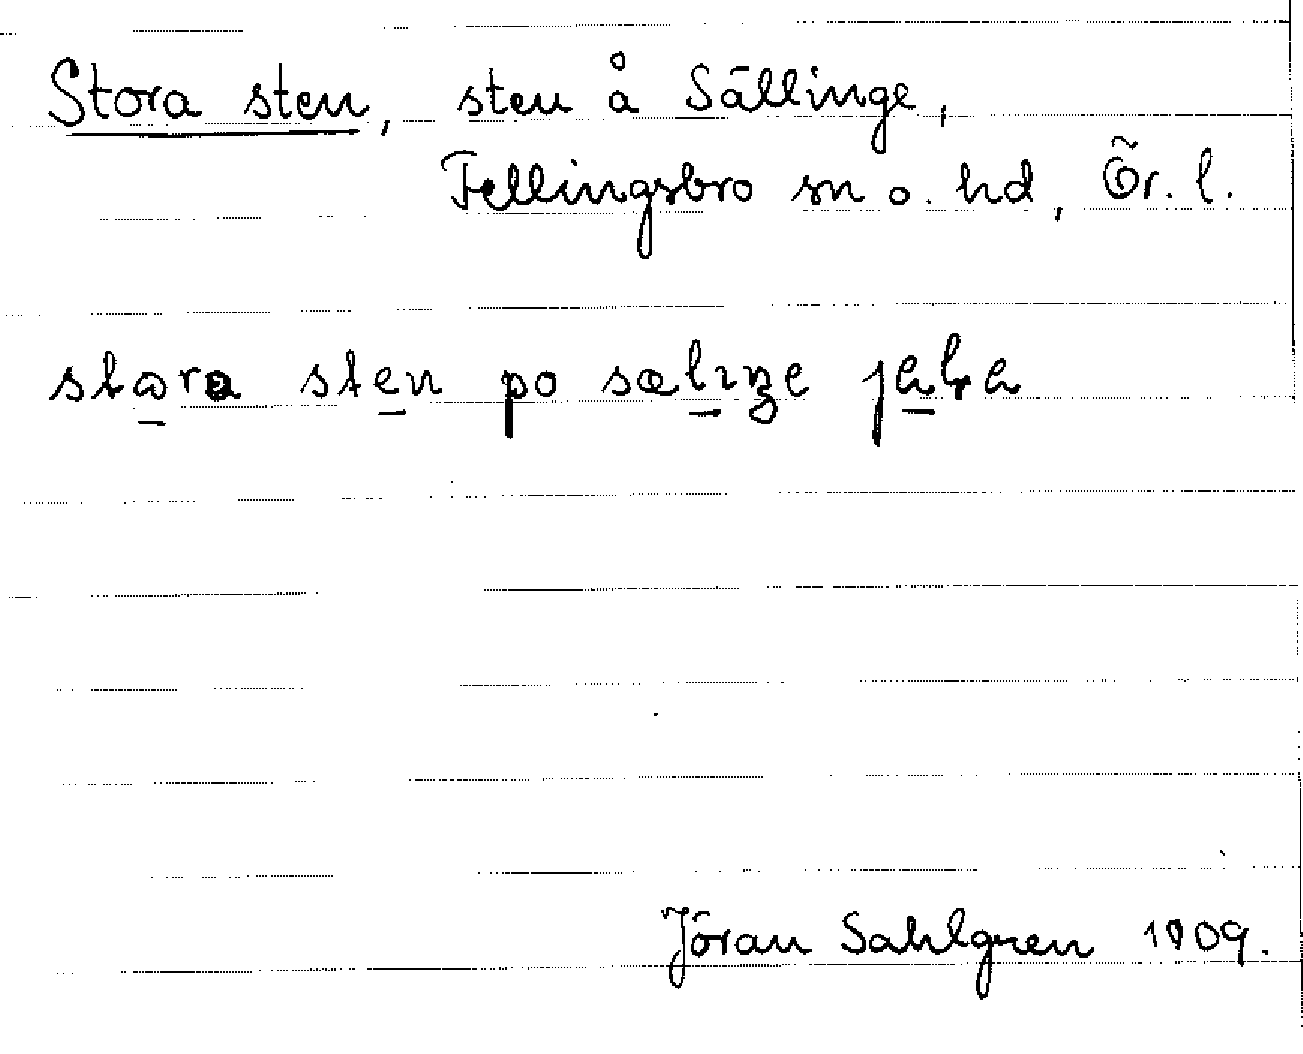 Stora sten, sten å Sällinge,
Fellingsbro sn o. hd, Ör. l.
stora sten po sælıŋe
Jöran Sahlgren 1909.